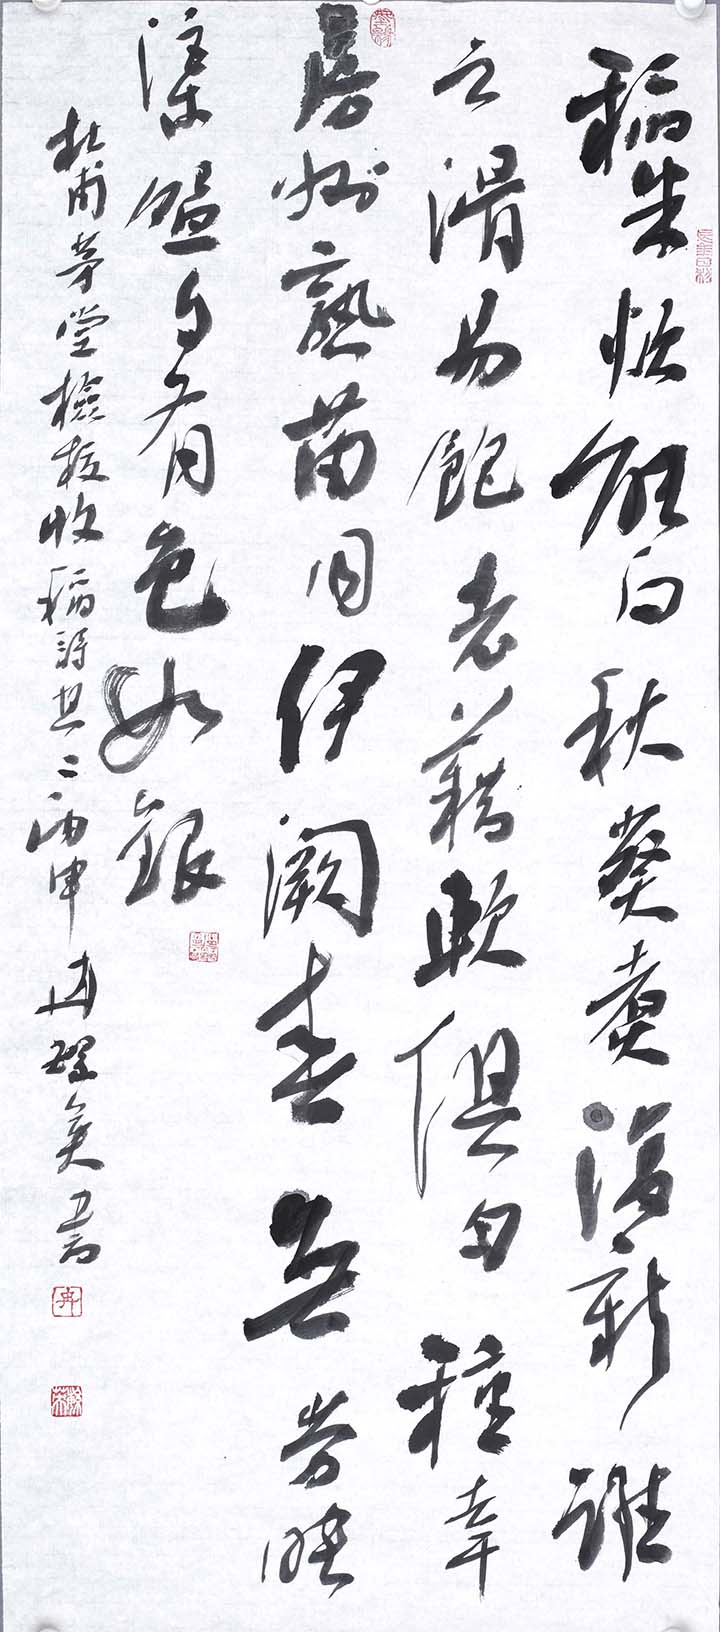 稻米炊能白秋葵煮復新誰
云滑易飽老藉軟俱匀種幸
房州熟苗同伊闕春無勞映
渠盌自有色如銀
杜甫茅堂檢校收稻詩其二丙申冉書
冉